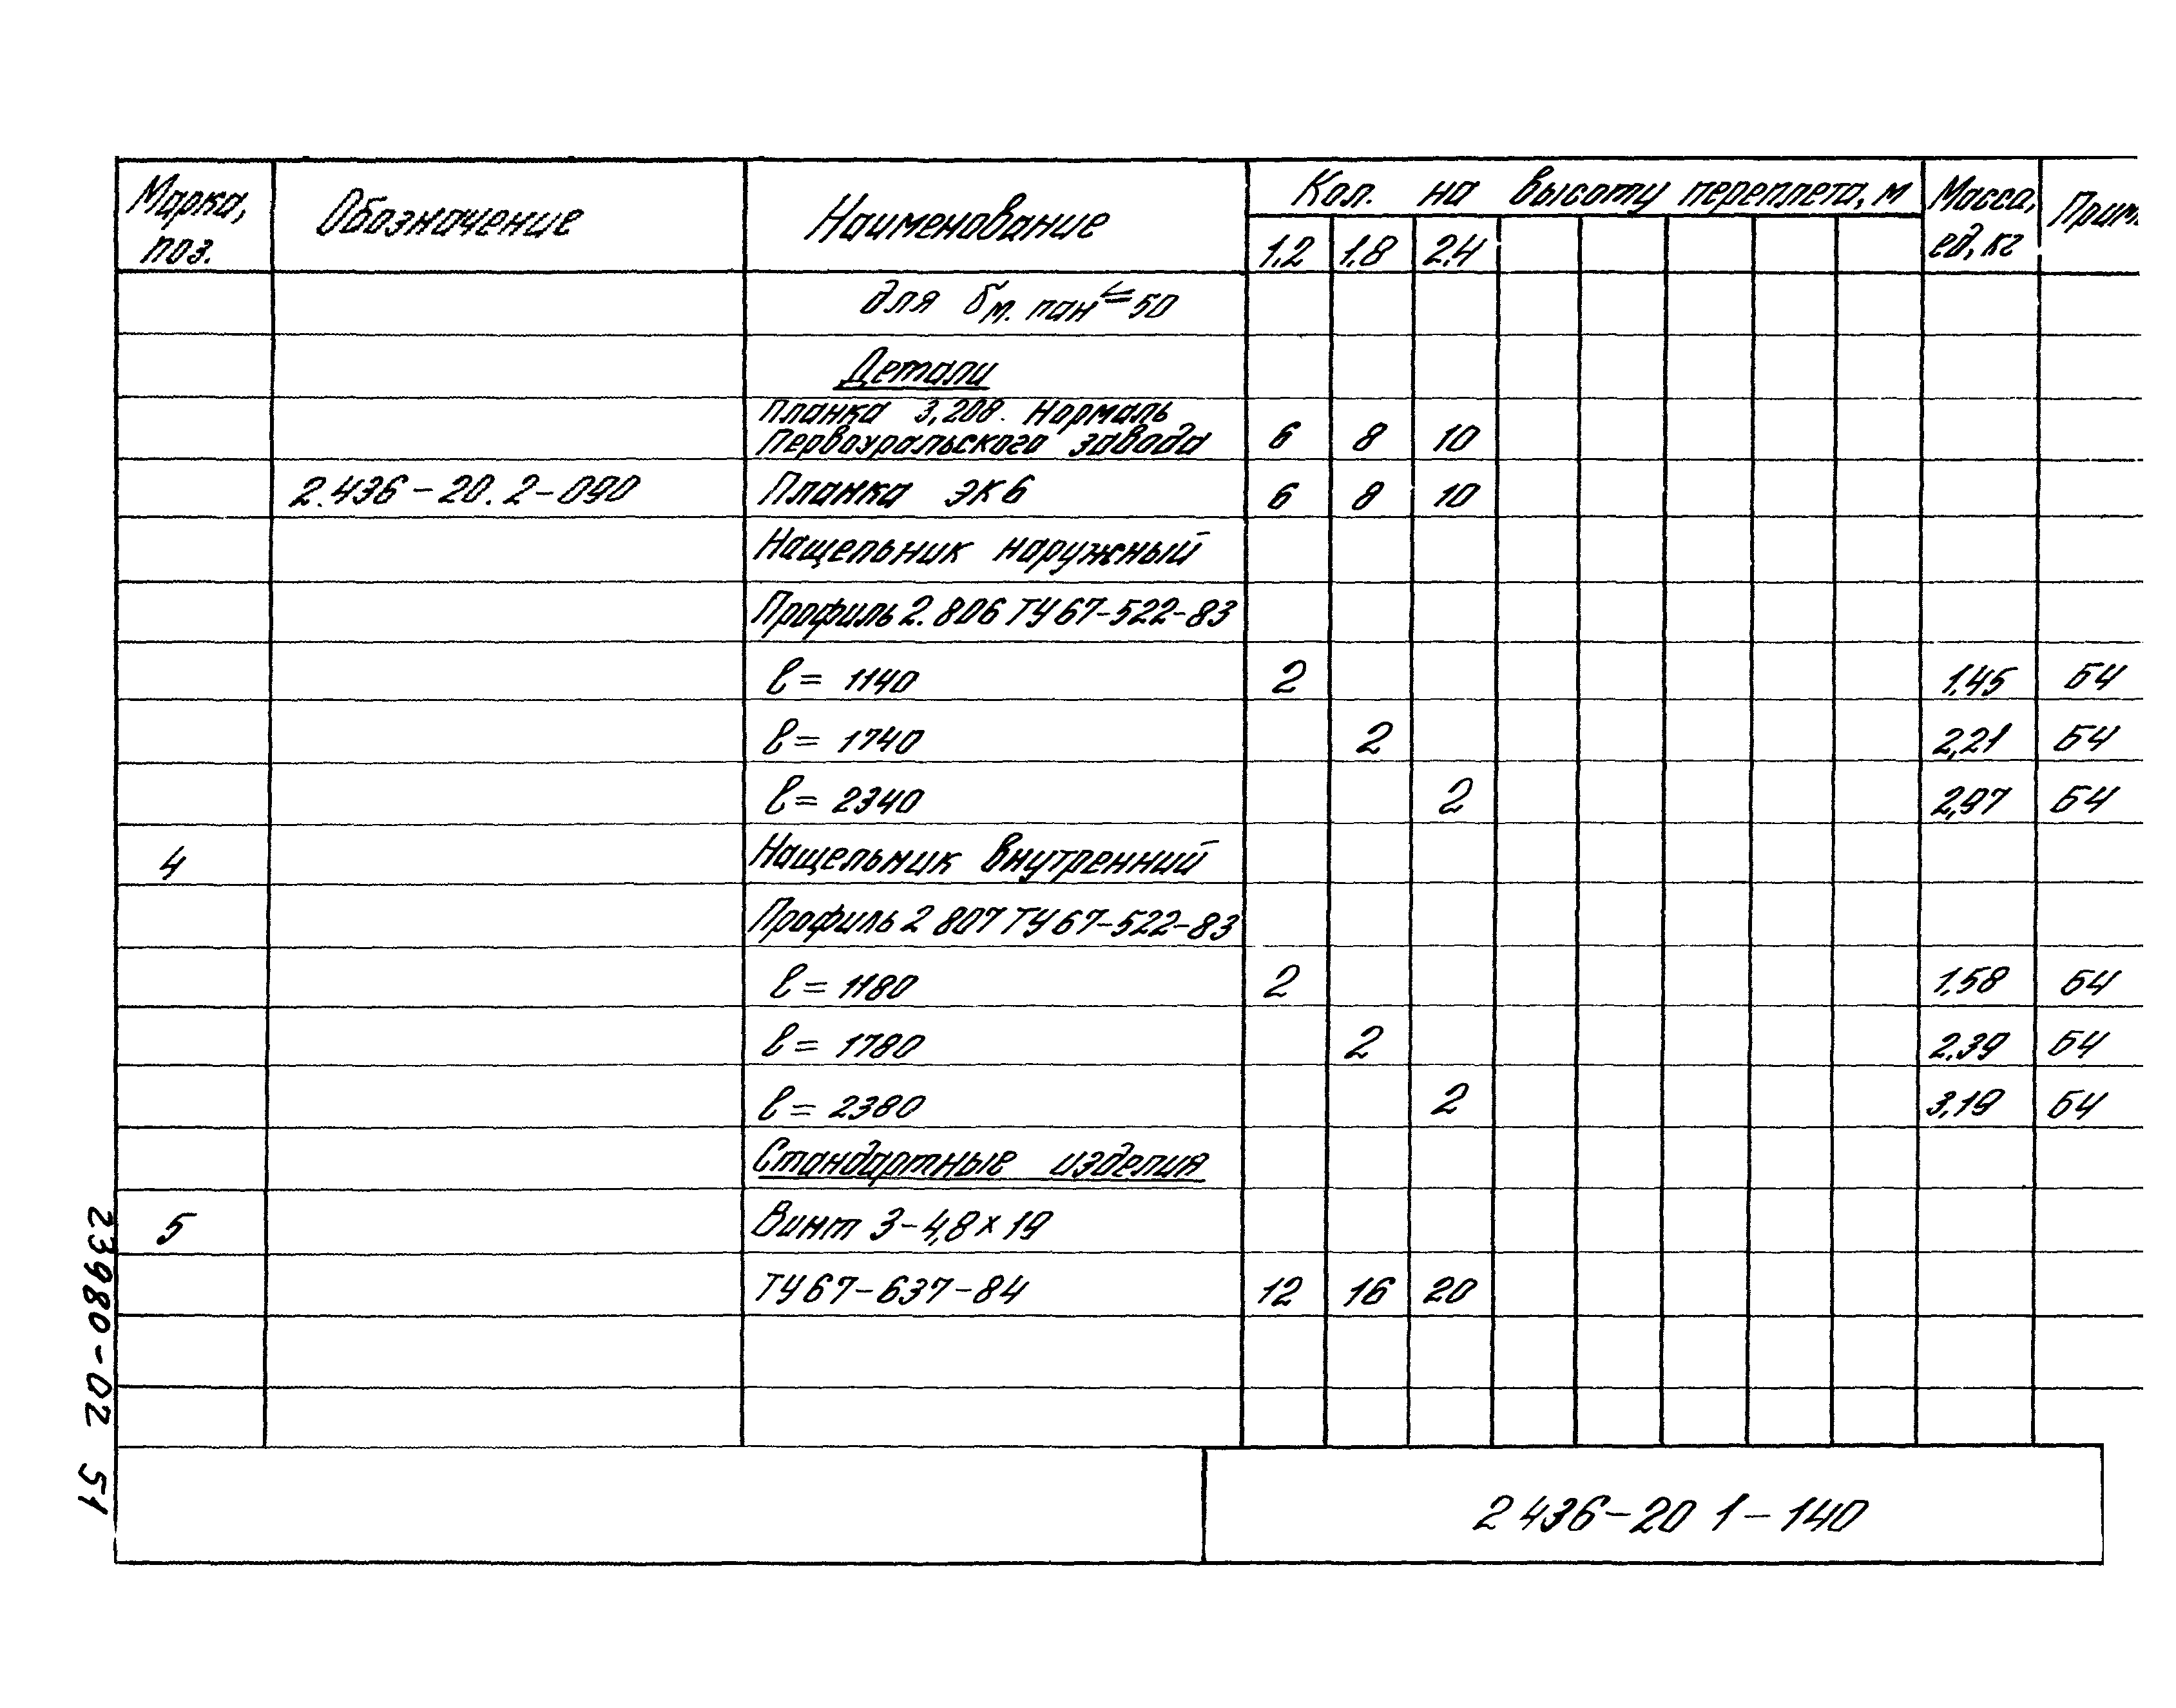 Марка, поз. Обозначение Наименование Кол. на высоту переплета, м Масса, ед, кг Прим.
1.2 1.8 2.4
для δм. пан ≤ 50
Детали
Планка 3,208. Нормаль
Первоуральского завода 6 8 10
2.436-20.2-090 Планка ЭК6 6 8 10
Нащельник наружный
Профиль 2.806 ТУ67-522-83
ℓ= 1140 2 1,45 БЧ
ℓ= 1740 2 2,21 БЧ
ℓ= 2340 2 2,97 БЧ
4 Нащельник внутренний
Профиль 2 807 ТУ67-522-83
ℓ= 1180 2 1,58 БЧ
ℓ= 1780 2 2.39 БЧ
ℓ= 2380 2 3,19 БЧ
Стандартные изделия
5 Винт 3-4,8×19
ТУ67-637-84 12 16 20
2 436-20 1-140
23980-02 51